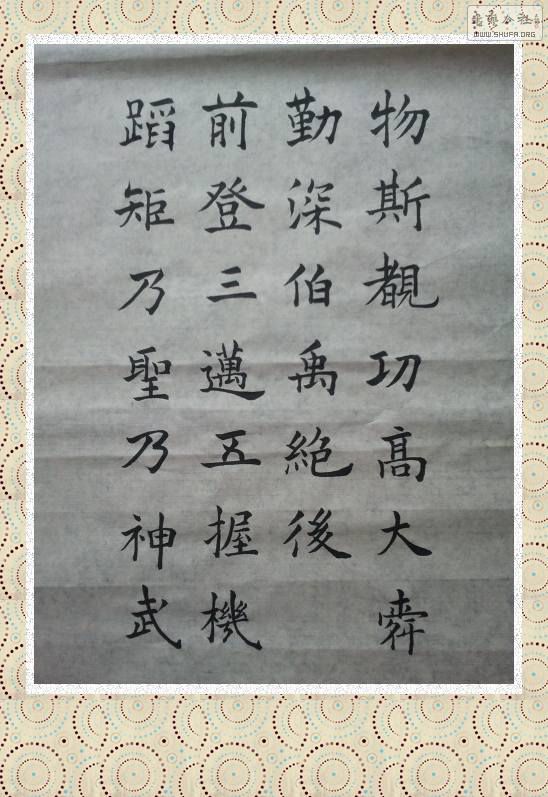 物斯覩功高大舜
勤深伯禹絶後
前登三邁五握機
蹈矩乃聖乃神武
WWW.SHUFA.ORG